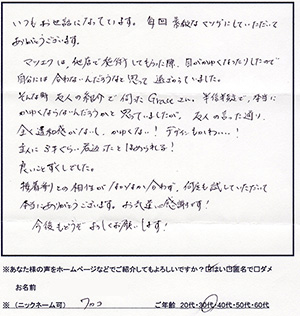 いつもお世話になっています。毎回素敵なマツゲにしていただいて
ありがとうございます。
マツエクは、他店で施術してもらった際、目がかゆくなったりしたので
自分には合わないんだろうなと思って遠ざかっていました。
そんな時友人の紹介で伺ったGraceさん。半信半疑で、本当に
かゆくならないんだろうかと思っていましたが、友人の言った通り、
全く違和感がないし、かゆくない!デザインもかわいい…!
主人に5才ぐらい若返ったとほめられる!
良いことずくしでした。
接着剤との相性がなかなか合わず、何度も試していただいて
本当にありがとうございます。お気遣いに感謝です!
今後もどうぞよろしくお願いします!
※あなた様の声をホームページなどでご紹介してもよろしいですか?□はい□匿名で□ダメ
お名前
※(ニックネーム可) ワカコ ご年齢 20代・30代・40代・50代・60代